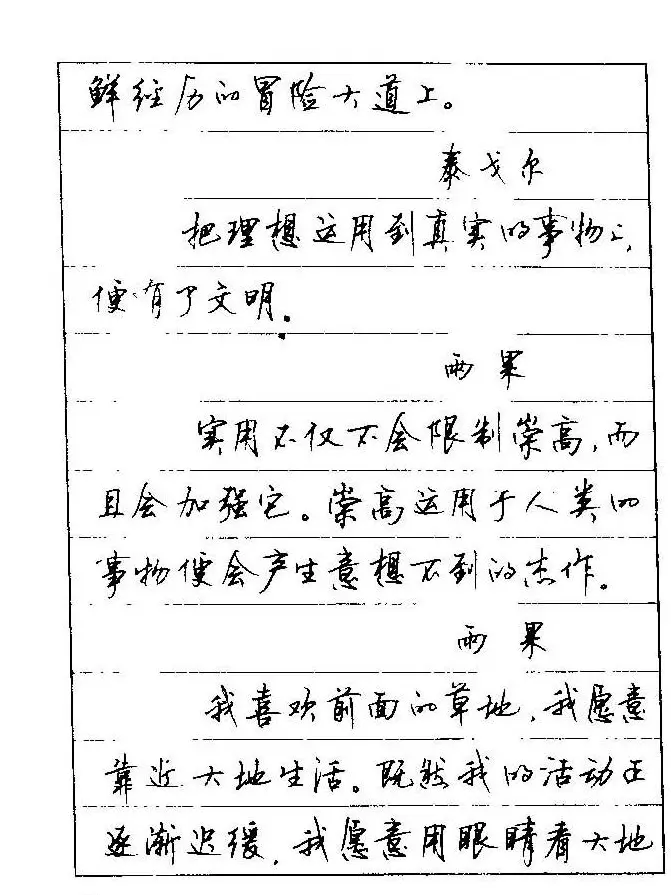 鲜经历的冒险大道上。
泰戈尔
把理想运用到真实的事物上,
便有了文明.
雨果
实用不仅不会限制崇高,而
且会加强它。崇高运用于人类的
事物便会产生意想不到的杰作。
雨果
我喜欢前面的草地,我愿意
靠近大地生活。既然我的活动正
逐渐迟缓,我愿意用眼睛看大地